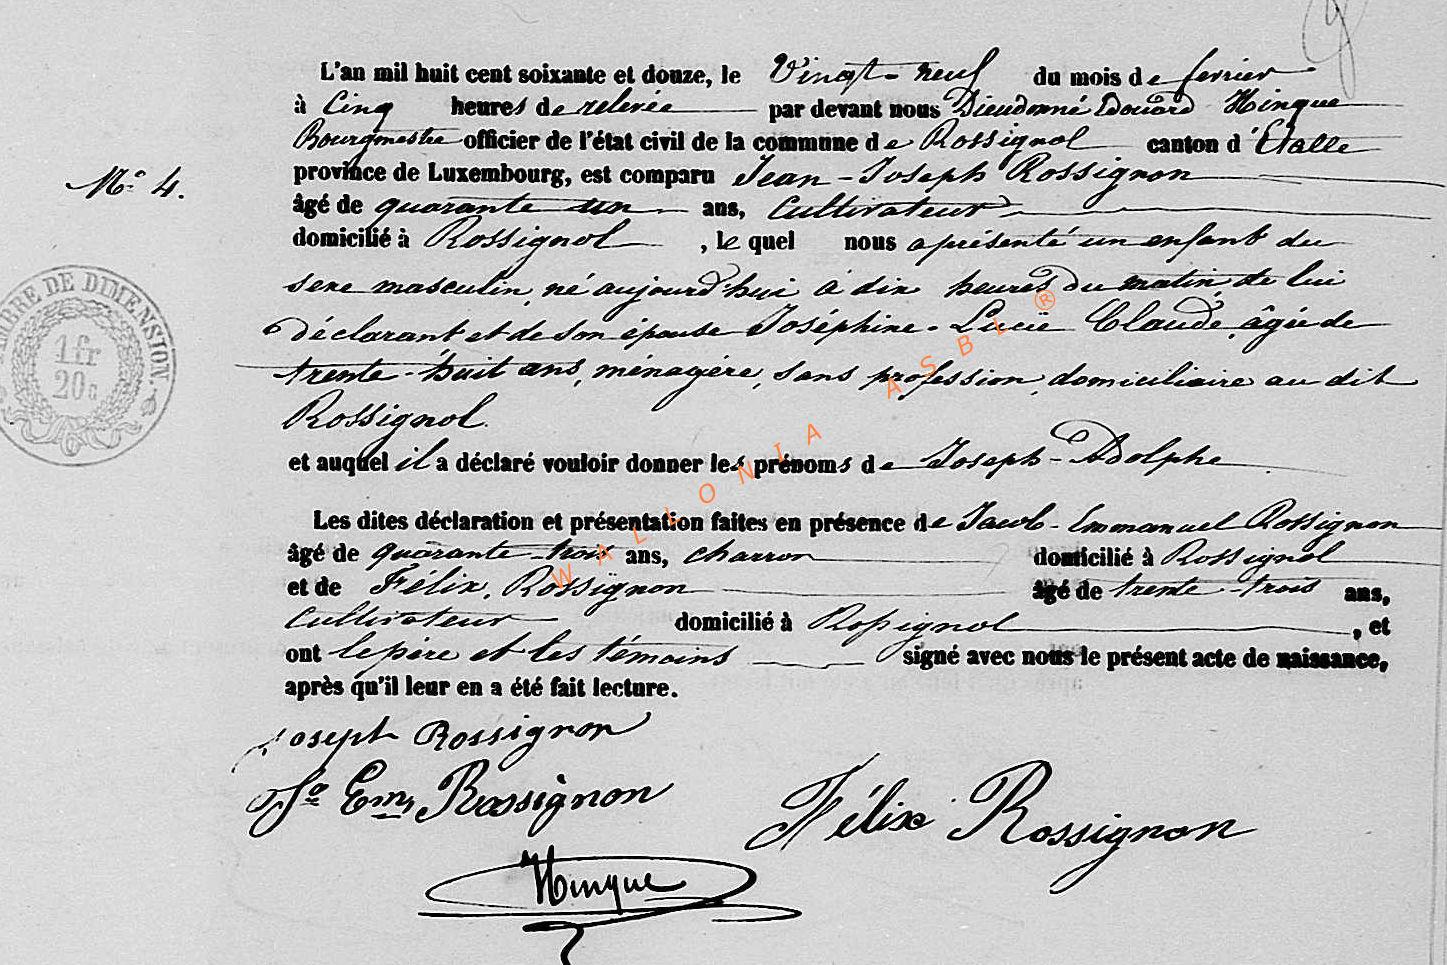 L'an mil huit cent soixante et douze, le Vingt-neuf du mois de ferrier
à Cinq heures de relevée par devant nous Dieudonné Edouard Hinque
Bourgmestre officier de l'état civil de la commune de Rossignol canton d'Etalle
N° 4.
province de Luxembourg, est comparu Jean-Joseph Rossignon
âgé de quarante un ans, Cultivateur
domicilié à Rossignol, le quel nous aprésenté un enfant du
sexe masculin, né aujourd'hui à dix heures du matin de lui
déclarant et de son épouse Joséphine-Lucie Claude, âgée de
trente-huit ans, ménagère, sans profession, domiciliaire au dit
Rossignol.
TIMBRE DE DIMENSION.
1 fr
20 c
et auquel il a déclaré vouloir donner les prénoms de Joseph-Adolphe
Les dites déclaration et présentation faites en présence de Jacob-Emmanuel Rossignon
âgé de quarante-trois ans, charron domicilié à Rossignol
et de Félix, Rossignon âgé de trente-trois ans,
Cultivateur domicilié à Rossignol, et
ont le père et les témoins signé avec nous le présent acte de naissance,
après qu'il leur en a été fait lecture.
Joseph Rossignon
Em Rossignon
Félix Rossignon
Hinque
WALLONIA ASBL ®